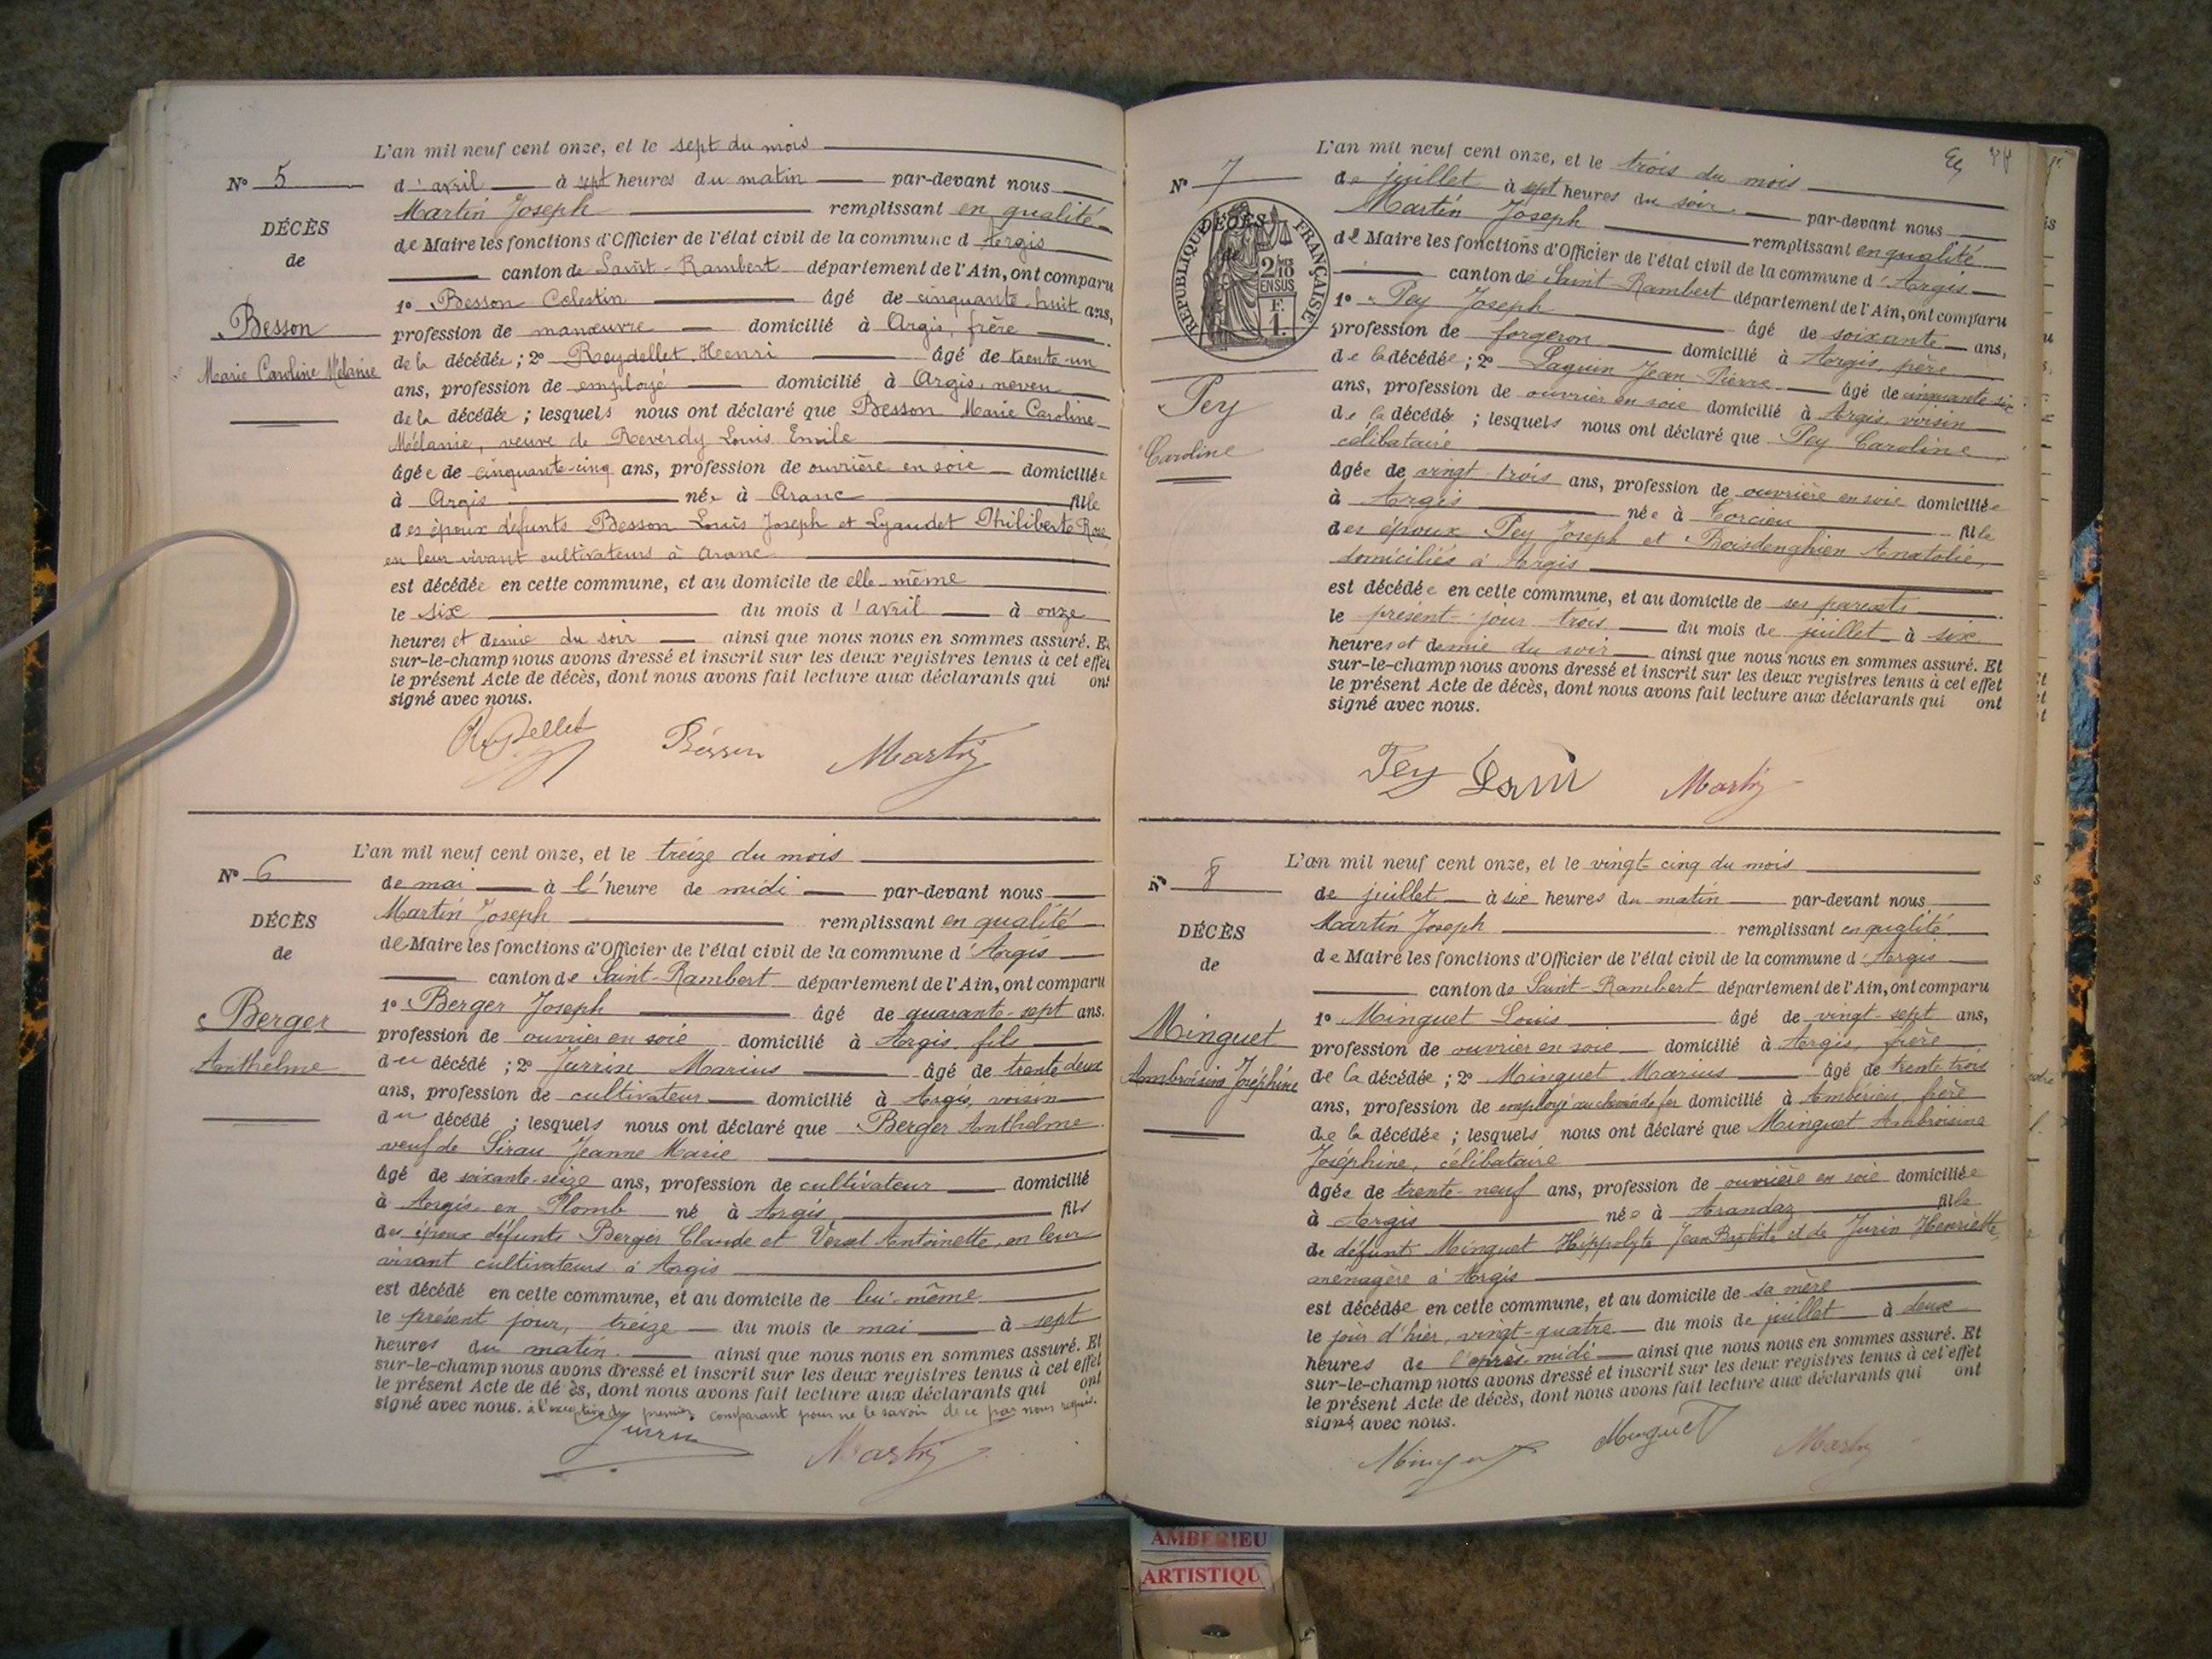 L'an mil neuf cent onze, et le sept du mois
N° 5
d'avril à sept heures du matin par-devant nous
Martin Joseph remplissant en qualité
DÉCÈS
de Maire les fonctions d'Officier de l'état civil de la commune d'Argis
de
canton de Saint-Rambert département de l'Ain, ont comparu
1° Besson Célestin âgé de cinquante-huit ans,
Besson
profession de manœuvre domicilié à Argis, frère
Marie Caroline Mélanie
de la décédée ; 2° Reydellet Henri âgé de trente-un
ans, profession de employé domicilié à Argis, neveu
de la décédée ; lesquels nous ont déclaré que Besson Marie Caroline
Mélanie, veuve de Reverdy Louis Emile
âgée de cinquante-cinq ans, profession de ouvrière en soie domiciliée
à Argis née à Aranc fille
des époux défunts Besson Louis Joseph et Lyaudet Philiberte Rose
en leur vivant cultivateurs à Aranc
est décédée en cette commune, et au domicile de elle-même
le six du mois d'avril à onze
heures et demie du soir ainsi que nous nous en sommes assuré. Et
sur-le-champ nous avons dressé et inscrit sur les deux registres tenus à cet effet
le présent Acte de décès, dont nous avons fait lecture aux déclarants qui ont
signé avec nous.
Reydellet Besson Martin
L'an mil neuf cent onze, et le treize du mois
N° 6
de mai à l'heure de midi par-devant nous
Martin Joseph remplissant en qualité
DÉCÈS
de Maire les fonctions d'Officier de l'état civil de la commune d'Argis
de
canton de Saint-Rambert département de l'Ain, ont comparu
1° Berger Joseph âgé de quarante-sept ans.
Berger
profession de ouvrier en soie domicilié à Argis, fils
Anthelme
du décédé ; 2° Jurrin Marius âgé de trente deux
ans, profession de cultivateur domicilié à Argis, voisin
du décédé ; lesquels nous ont déclaré que Berger Anthelme
veuf de Sirau Jeanne Marie
âgé de soixante-seize ans, profession de cultivateur domicilié
à Argis en Plomb né à Argis fils
des époux défunts Berger Claude et Antoinette, en leur
vivant cultivateurs à Argis
est décédé en cette commune, et au domicile de lui-même
le présent jour, treize du mois de mai à sept
heures du matin. ainsi que nous nous en sommes assuré. Et
sur-le-champ nous avons dressé et inscrit sur les deux registres tenus à cet effet
le présent Acte de dé ès, dont nous avons fait lecture aux déclarants qui ont
signé avec nous. à l'exception du premier comparant pour ne le savoir de ce par nous requis.
Jurrin Martin
L'an mil neuf cent onze, et le trois du mois
N° 7
de juillet à sept heures du soir par-devant nous
Martin Joseph remplissant en qualité
DÉCÈS
de
RÉPUBLIQUE FRANÇAISE
2/10 EN SUS
F. 1.
de Maire les fonctions d'Officier de l'état civil de la commune d'Argis
canton de Saint-Rambert département de l'Ain, ont comparu
1° Pey Joseph âgé de soixante ans,
profession de forgeron domicilié à Argis, père
de la décédée ; 2° Laguin Jean-Pierre âgé de cinquante-six
Pey
ans, profession de ouvrier en soie domicilié à Argis, voisin
de la décédée ; lesquels nous ont déclaré que Pey Caroline
Caroline
célibataire
âgée de vingt-trois ans, profession de ouvrière en soie domiciliée
à Argis née à Torcieu fille
des époux Pey Joseph et Boisdenghien Anatolie,
domiciliés à Argis
est décédée en cette commune, et au domicile de ses parents
le présent jour trois du mois de juillet à six
heures et demie du soir ainsi que nous nous en sommes assuré. Et
sur-le-champ nous avons dressé et inscrit sur les deux registres tenus à cet effet
le présent Acte de décès, dont nous avons fait lecture aux déclarants qui ont
signé avec nous.
Pey Martin
L'an mil neuf cent onze, et le vingt-cinq du mois
N° 8
de juillet à six heures du matin par-devant nous
Martin Joseph remplissant en qualité
DÉCÈS
de Maire les fonctions d'Officier de l'état civil de la commune d'Argis
de
canton de Saint-Rambert département de l'Ain, ont comparu
1° Minguet Louis âgé de vingt-sept ans,
Minguet
profession de ouvrier en soie domicilié à Argis, frère
Ambroisine Joséphine
de la décédée ; 2° Minguet Marius âgé de trente-trois
ans, profession de employé au chemin de fer domicilié à Ambérieu, frère
de la décédée ; lesquels nous ont déclaré que Minguet Ambroisine
Joséphine, célibataire
âgée de trente-neuf ans, profession de ouvrière en soie domiciliée
à Argis née à Arandaz fille
de défunt Minguet Hippolyte Jean Baptiste et de Jurin Henriette,
ménagère à Argis
est décédée en cette commune, et au domicile de sa mère
le jour d'hier, vingt-quatre du mois de juillet à deux
heures de l'après-midi ainsi que nous nous en sommes assuré. Et
sur-le-champ nous avons dressé et inscrit sur les deux registres tenus à cet effet
le présent Acte de décès, dont nous avons fait lecture aux déclarants qui ont
signé avec nous.
Minguet Minguet Martin
AMBERIEU
ARTISTIQU